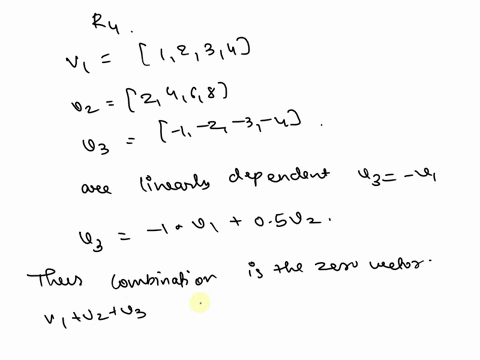 R4.
v1 = [1,2,3,4]
v2 = [2,4,6,8)
v3 = [-1,-2,-3,-4].
are linearly dependent v3=-v1
v3 = -1 • v1 + 0.5v2.
Thus combination is the zero vector.
v1+v2+v3